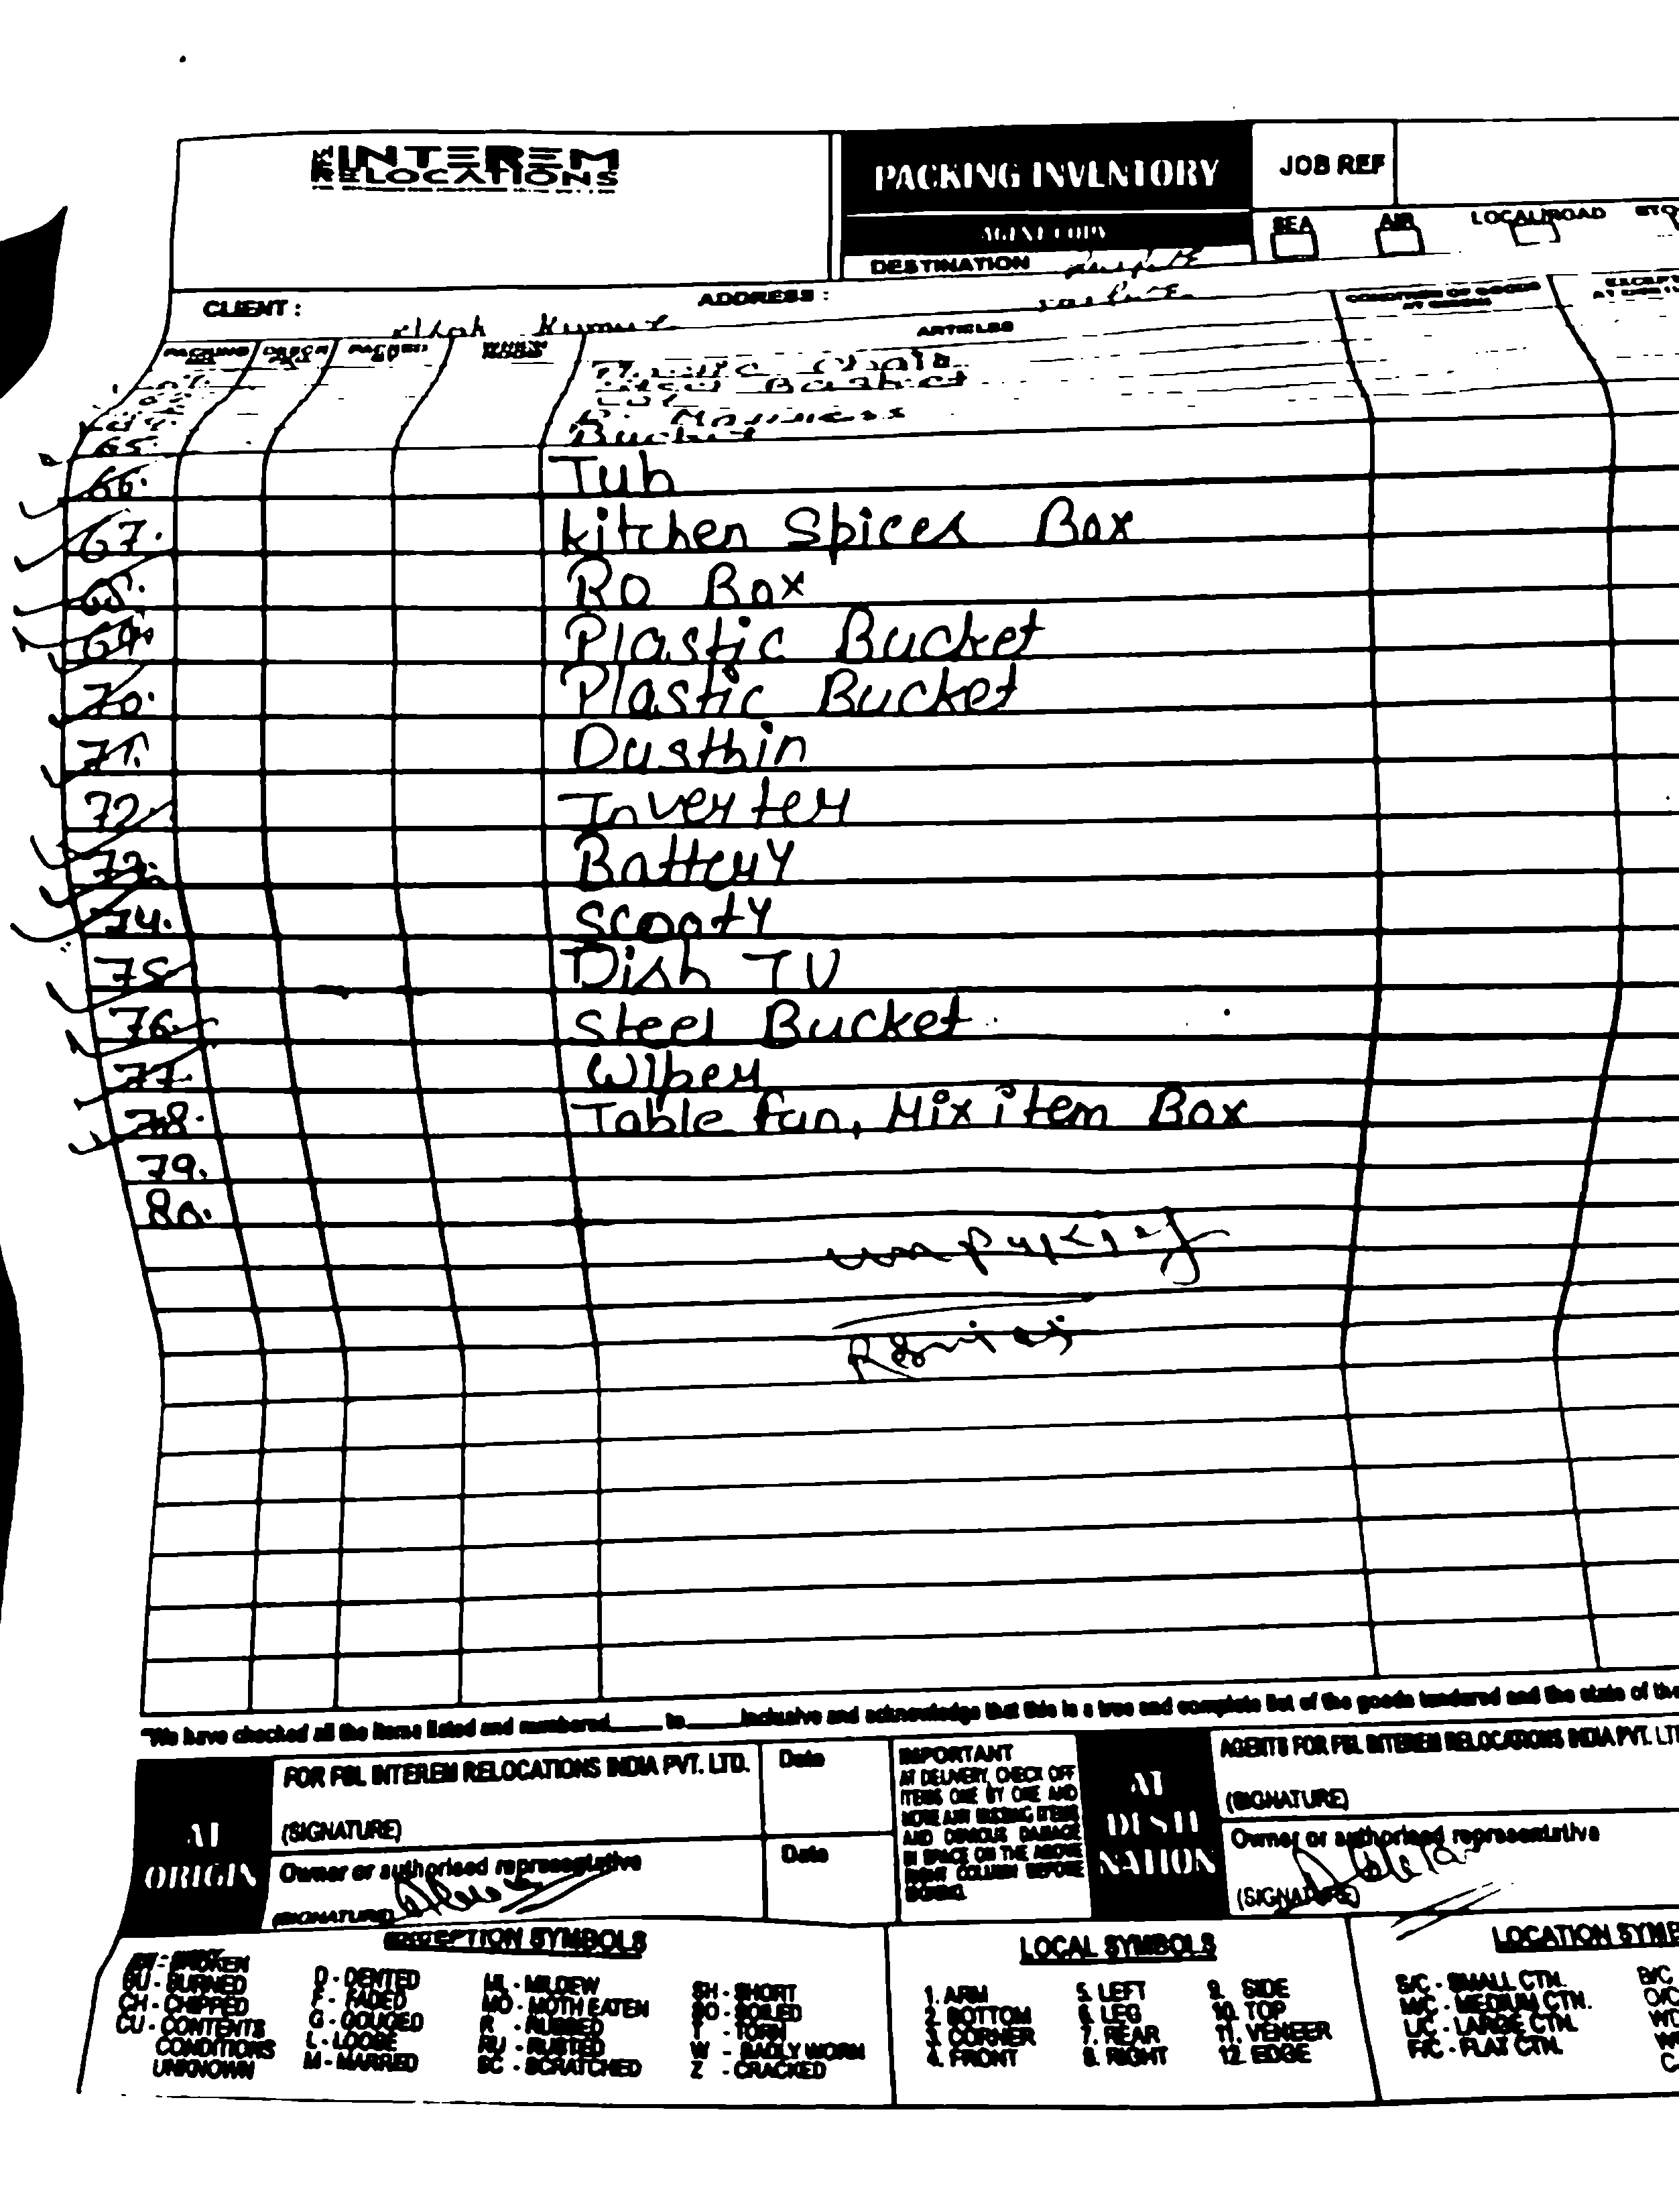 INTEREM
RELOCATIONS
PACKING INVENTORY
JOB REF
AGENT COPY
SEA AIR LOCAL/ROAD
DESTINATION
CLIENT : Kumar
ADDRESS :
PACKING
ARTICLES
CONDITION OF GOODS
AT ORIGIN
Plastic Chair
Basket
Mattress
65. Bucket
66. Tub
67. kitchen Spices Box
68. RO Box
69. Plastic Bucket
70. Plastic Bucket
71. Dustbin
72. Inverter
73. Battery
74. Scooty
75. Dish TV
76. Steel Bucket
77. Wiper
78. Table fan, Mix item Box
79.
80.
"We have checked all the items listed and numbered____ to ____inclusive and acknowledge that this is a true and complete list of the goods tendered and the state of the
AT ORIGIN
FOR FSL INTEREM RELOCATIONS INDIA PVT. LTD.
(SIGNATURE)
Date
Owner or authorised representative
(SIGNATURE)
Date
IMPORTANT
AT DELIVERY, CHECK OFF
ITEMS ONE BY ONE AND
NOTE ANY MISSING ITEMS
AND OBVIOUS DAMAGE
IN SPACE ON THE ABOVE
RIGHT COLUMN BEFORE
SIGNING.
AT DESTINATION
AGENTS FOR FSL INTEREM RELOCATIONS INDIA PVT. LT
(SIGNATURE)
Owner or authorised representative
(SIGNATURE)
EXCEPTION SYMBOLS
BU - BURNED
CH - CHIPPED
CU - CONTENTS
CONDITIONS
UNKNOWN
D - DENTED
F - FADED
G - GOUGED
L - LOOSE
M - MARRED
ML - MILDEW
MO - MOTH EATEN
R - RUBBED
RU - RUSTED
SC - SCRATCHED
SH - SHORT
SO - SOILED
T - TORN
W - BADLY WORN
Z - CRACKED
LOCAL SYMBOLS
1. ARM
2. BOTTOM
3. CORNER
4. FRONT
5. LEFT
6. LEG
7. REAR
8. RIGHT
9. SIDE
10. TOP
11. VENEER
12. EDGE
LOCATION SYMB
S/C - SMALL CTN.
M/C - MEDIUM CTN.
L/C - LARGE CTN.
F/C - FLAT CTN.